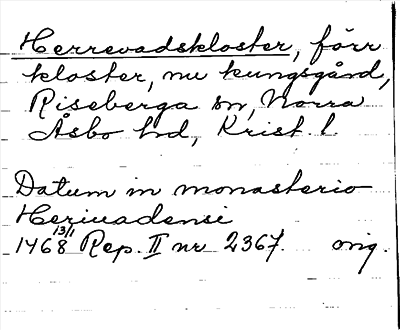 Herrevadskloster, förr
kloster, nu kungsgård,
Riseberga sn, Norra
Åsbo hd, Krist. l.
Datum in monasterio
Heriuadensi
1468 13/1 Rep. II nr 2367. orig.